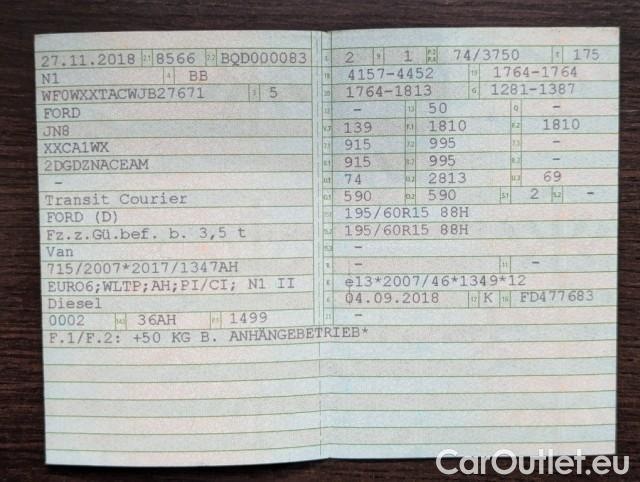 27.11.2018 2.1 8566 2.2 BQD000083
N1 4 BB
WF0WXXTACWJB27671 3 5
FORD
JN8
XXCA1WX
2DGDZNACEAM
-
Transit Courier
FORD (D)
Fz.z.Gü.bef. b. 3,5 t
Van
715/2007*2017/1347AH
EURO6;WLTP;AH;PI/CI; N1 II
Diesel
0002 36AH P.1 1499
F.1/F.2: +50 KG B. ANHÄNGEBETRIEB*
2 9 1 P.2 P.4 74/3750 T 175
18 4157-4452 19 1764-1764
20 1764-1813 G 1281-1387
12 - 13 50 Q -
V.7 139 F.1 1810 F.2 1810
7.1 915 7.2 995 7.3 -
8.1 915 8.2 995 8.3 -
U.1 74 U.2 2813 U.3 69
O.1 590 O.2 590 S.1 2 S.2 -
15.1 195/60R15 88H
15.2 195/60R15 88H
15.3 -
R - 11 -
K e13*2007/46*1349*12
6 04.09.2018 17 K 16 FD477683
21 -
CarOutlet.eu